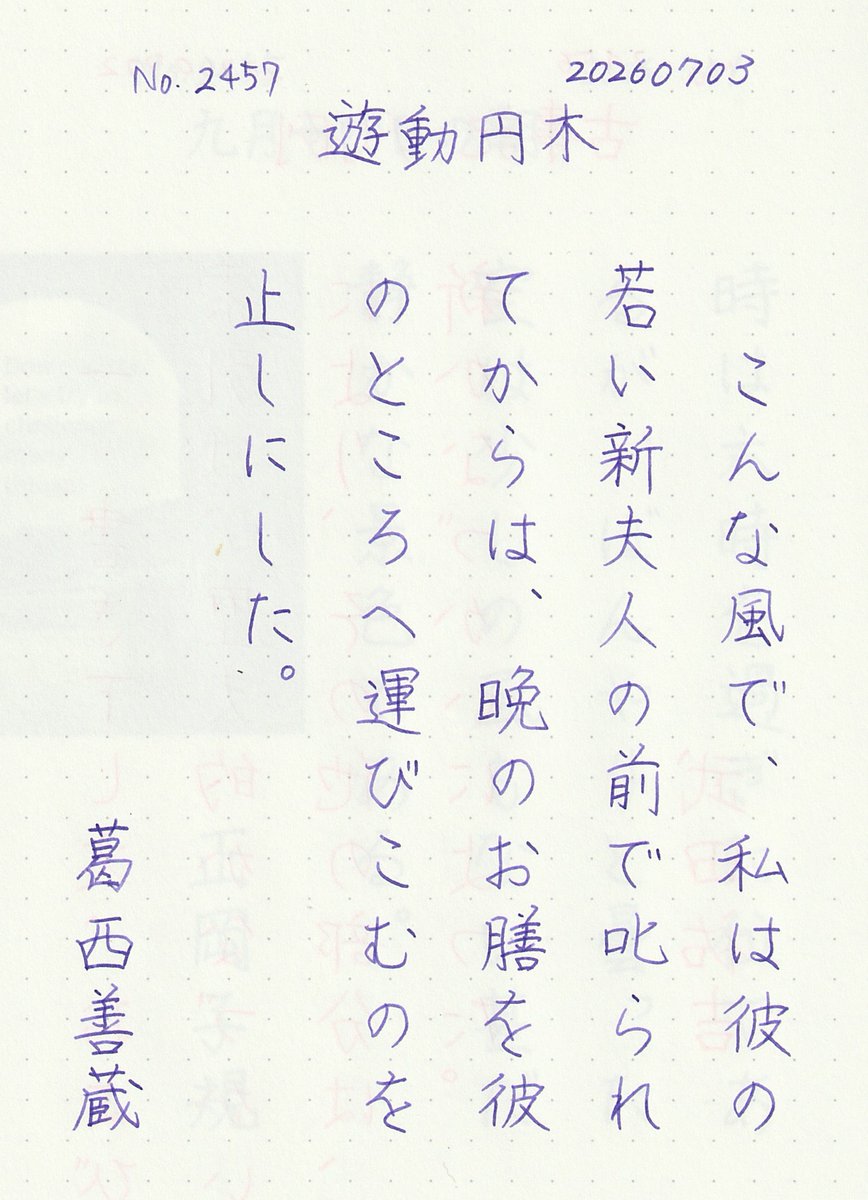 No. 2457
20260703
遊動円木
こんな風で、私は彼の
若い新夫人の前で叱られ
てからは、晩のお膳を彼
のところへ運びこむのを
止しにした。
葛西善蔵